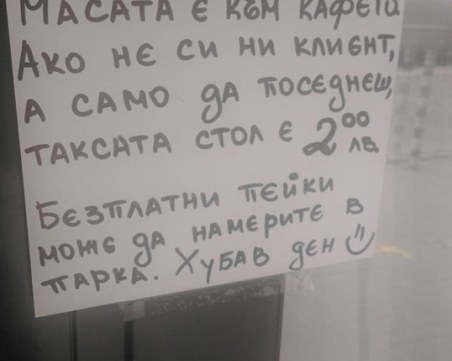 МАСАТА Е КЪМ КАФЕТО.
АКО НЕ СИ НИ КЛИЕНТ,
А САМО ДА ПОСЕДНЕШ,
ТАКСАТА СТОЛ Е 2⁰⁰ ЛВ.
БЕЗПЛАТНИ ПЕЙКИ
МОЖЕ ДА НАМЕРИТЕ В
ПАРКА. ХУБАВ ДЕН